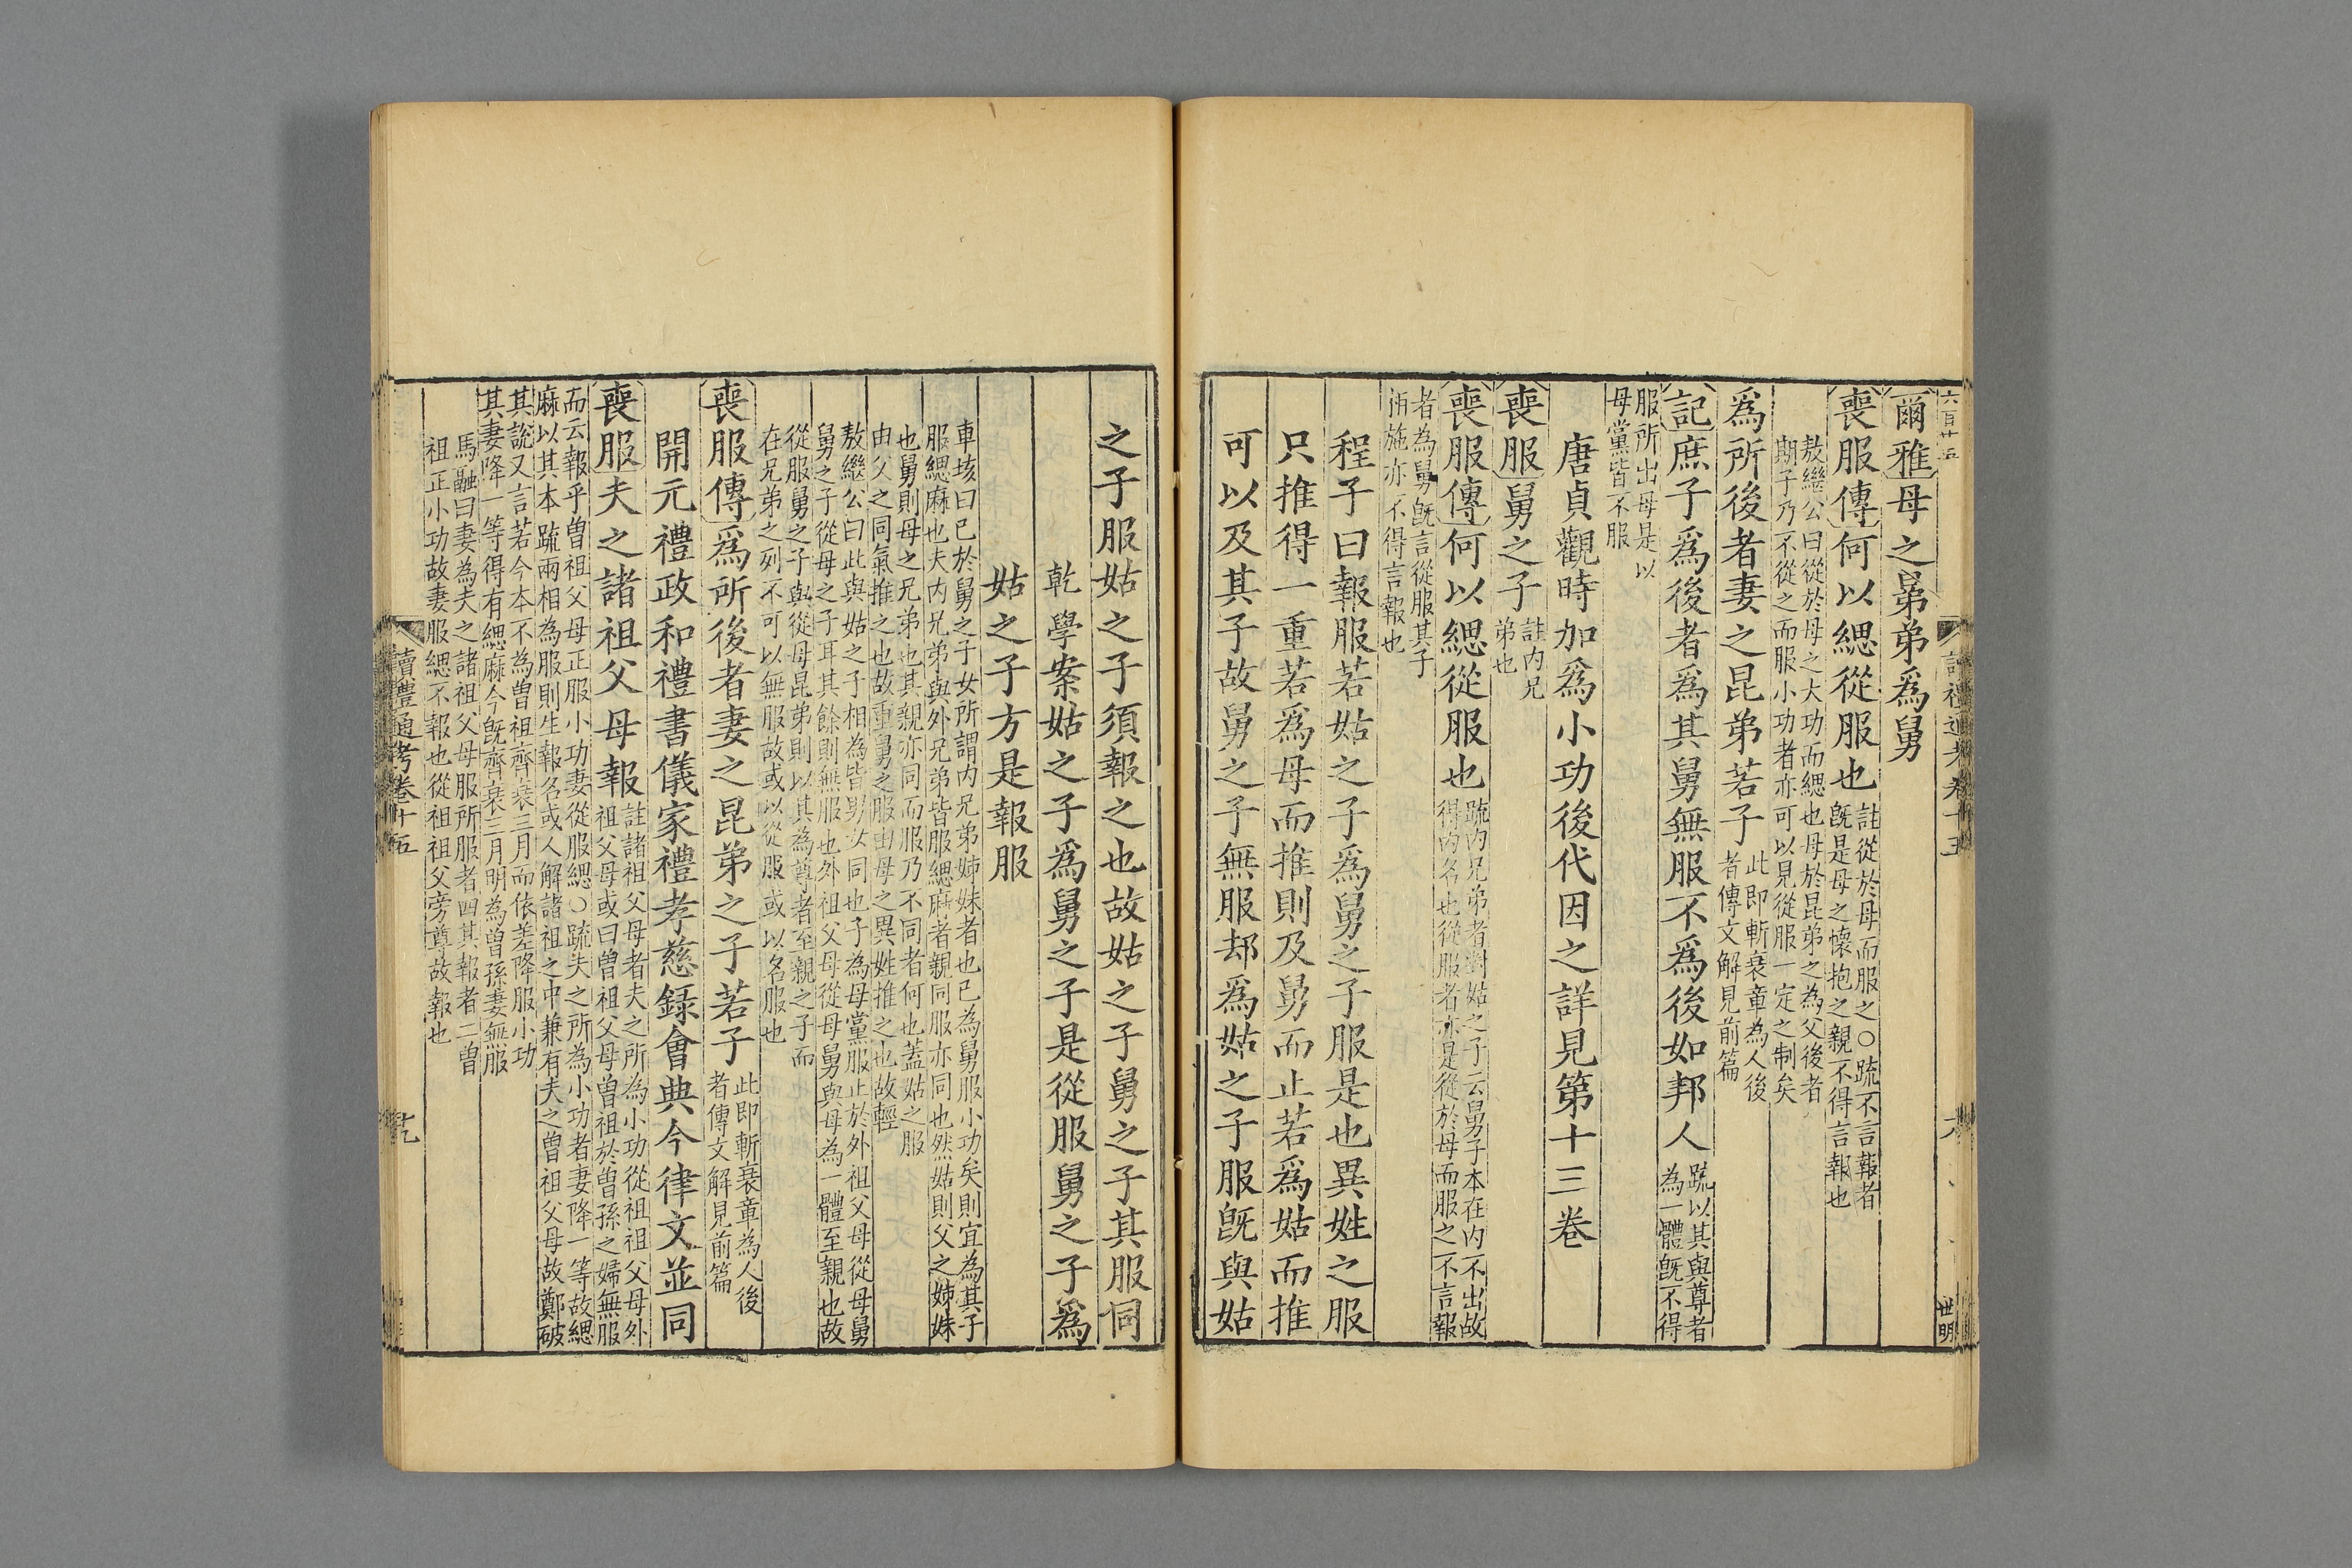 六百廿五
讀禮通考卷十五
世明
爾雅母之晜弟爲舅
喪服傳何以緦從服也註從於母而服之○疏不言報者
既是母之懷抱之親不得言報也
敖繼公曰從於母之大功而緦也母於昆弟之為父後者
期子乃不從之而服小功者亦可以見從服一定之制矣
為所後者妻之昆弟若子此即斬衰章為人後
者傳文解見前篇
記庶子爲後者爲其舅無服不爲後如邦人疏以其與尊者
為一體既不得
服所出母是以
母黨皆不服
唐貞觀時加爲小功後代因之詳見第十三卷
喪服舅之子註内兄
弟也
喪服傳何以緦從服也疏内兄弟者對姑之子云舅子本在内不出故
得内名也從服者亦是從於母而服之不言報
者為舅既言從服其子
施亦不得言報也
程子曰報服若姑之子爲舅之子服是也異姓之服
只推得一重若爲母而推則及舅而止若爲姑而推
可以及其子故舅之子無服却爲姑之子服既與姑
之子服姑之子須報之也故姑之子舅之子其服同
乾學案姑之子爲舅之子是從服舅之子爲
姑之子方是報服
車垓曰已於舅之子女所謂内兄弟姊妹者也已為舅服小功矣則宜為其子
服緦麻也夫内兄弟與外兄弟皆服緦麻者親同服亦同也然姑則父之姊妹
也舅則母之兄弟也其親亦同而服乃不同者何也蓋姑之服
由父之同氣推之也故重舅之服由母之異姓推之也故輕
敖繼公曰此與姑之子相為皆男女同也子為母黨服止於外祖父母從母舅
舅之子從母之子耳其餘則無服也外祖父母從母舅與母為一體至親也故
從服舅之子與從母昆弟則以其為尊者至親之子而
在兄弟之列不可以無服故或以從服或以名服也
喪服傳爲所後者妻之昆弟之子若子此即斬衰章為人後
者傳文解見前篇
開元禮政和禮書儀家禮孝慈録會典今律文並同
喪服夫之諸祖父母報註諸祖父母者夫之所為小功從祖祖父母外
祖父母或曰曽祖父母曽祖於曽孫之婦無服
而云報乎曽祖父母正服小功妻從服緦○疏夫之所為小功者妻降一等故緦
麻以其本疏兩相為服則生報名或人解諸祖之中兼有夫之曽祖父母故鄭破
其説又言若今本不為曽祖齊衰三月而依差降服小功
其妻降一等得有緦麻今既齊衰三月明為曽孫妻無服
馬融曰妻為夫之諸祖父母服所服者四其報者二曽
祖正小功故妻服緦不報也從祖祖父旁尊故報也
讀禮通考卷十五